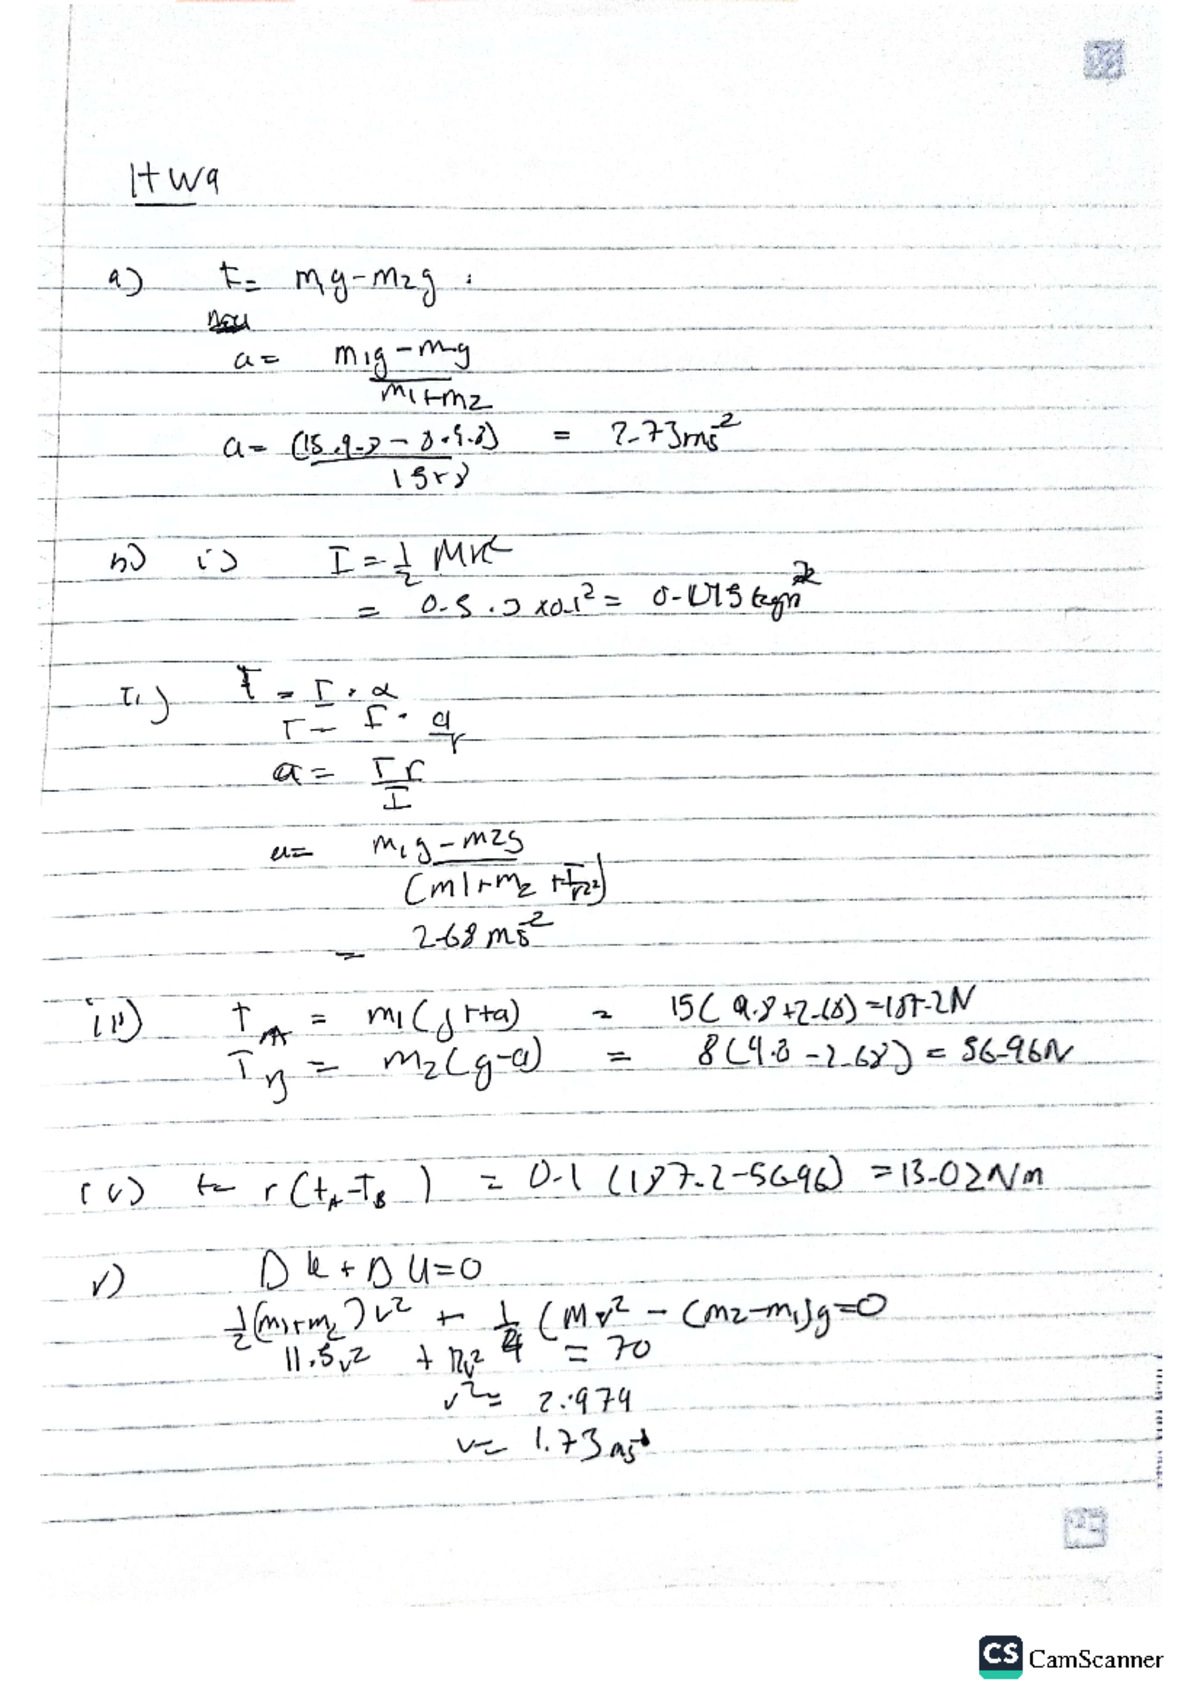 HW9
a) t= m1g-m2g
a= m1g-mg
m1+m2
a= (15.9.8 - 8.9.8) = 2.73ms-2
15+8
b) i) I = 1/2 Mr2
= 0.5 . 3 x0.1² = 0.015 kgm2
ii) τ = I . α
τ = I . a
r
a = τr
I
a= m1g-m2g
(m1+m2 + I/r2)
= 2.68 ms-2
iii) TA = m1(g+a) = 15(9.8+2.68)=187.2N
TB = m2(g-a) = 8(9.8-2.68) = 56.96N
iv) t= r(tA-TB) = 0.1 (187.2-56.96) =13.02Nm
v) Dk+DU=0
1/2(m1+m2)v2 + 1/4 (Mv2 - (m2-m1)g=0
11.5v2 + = 70
v2= 2.979
v= 1.73ms-1
CS CamScanner